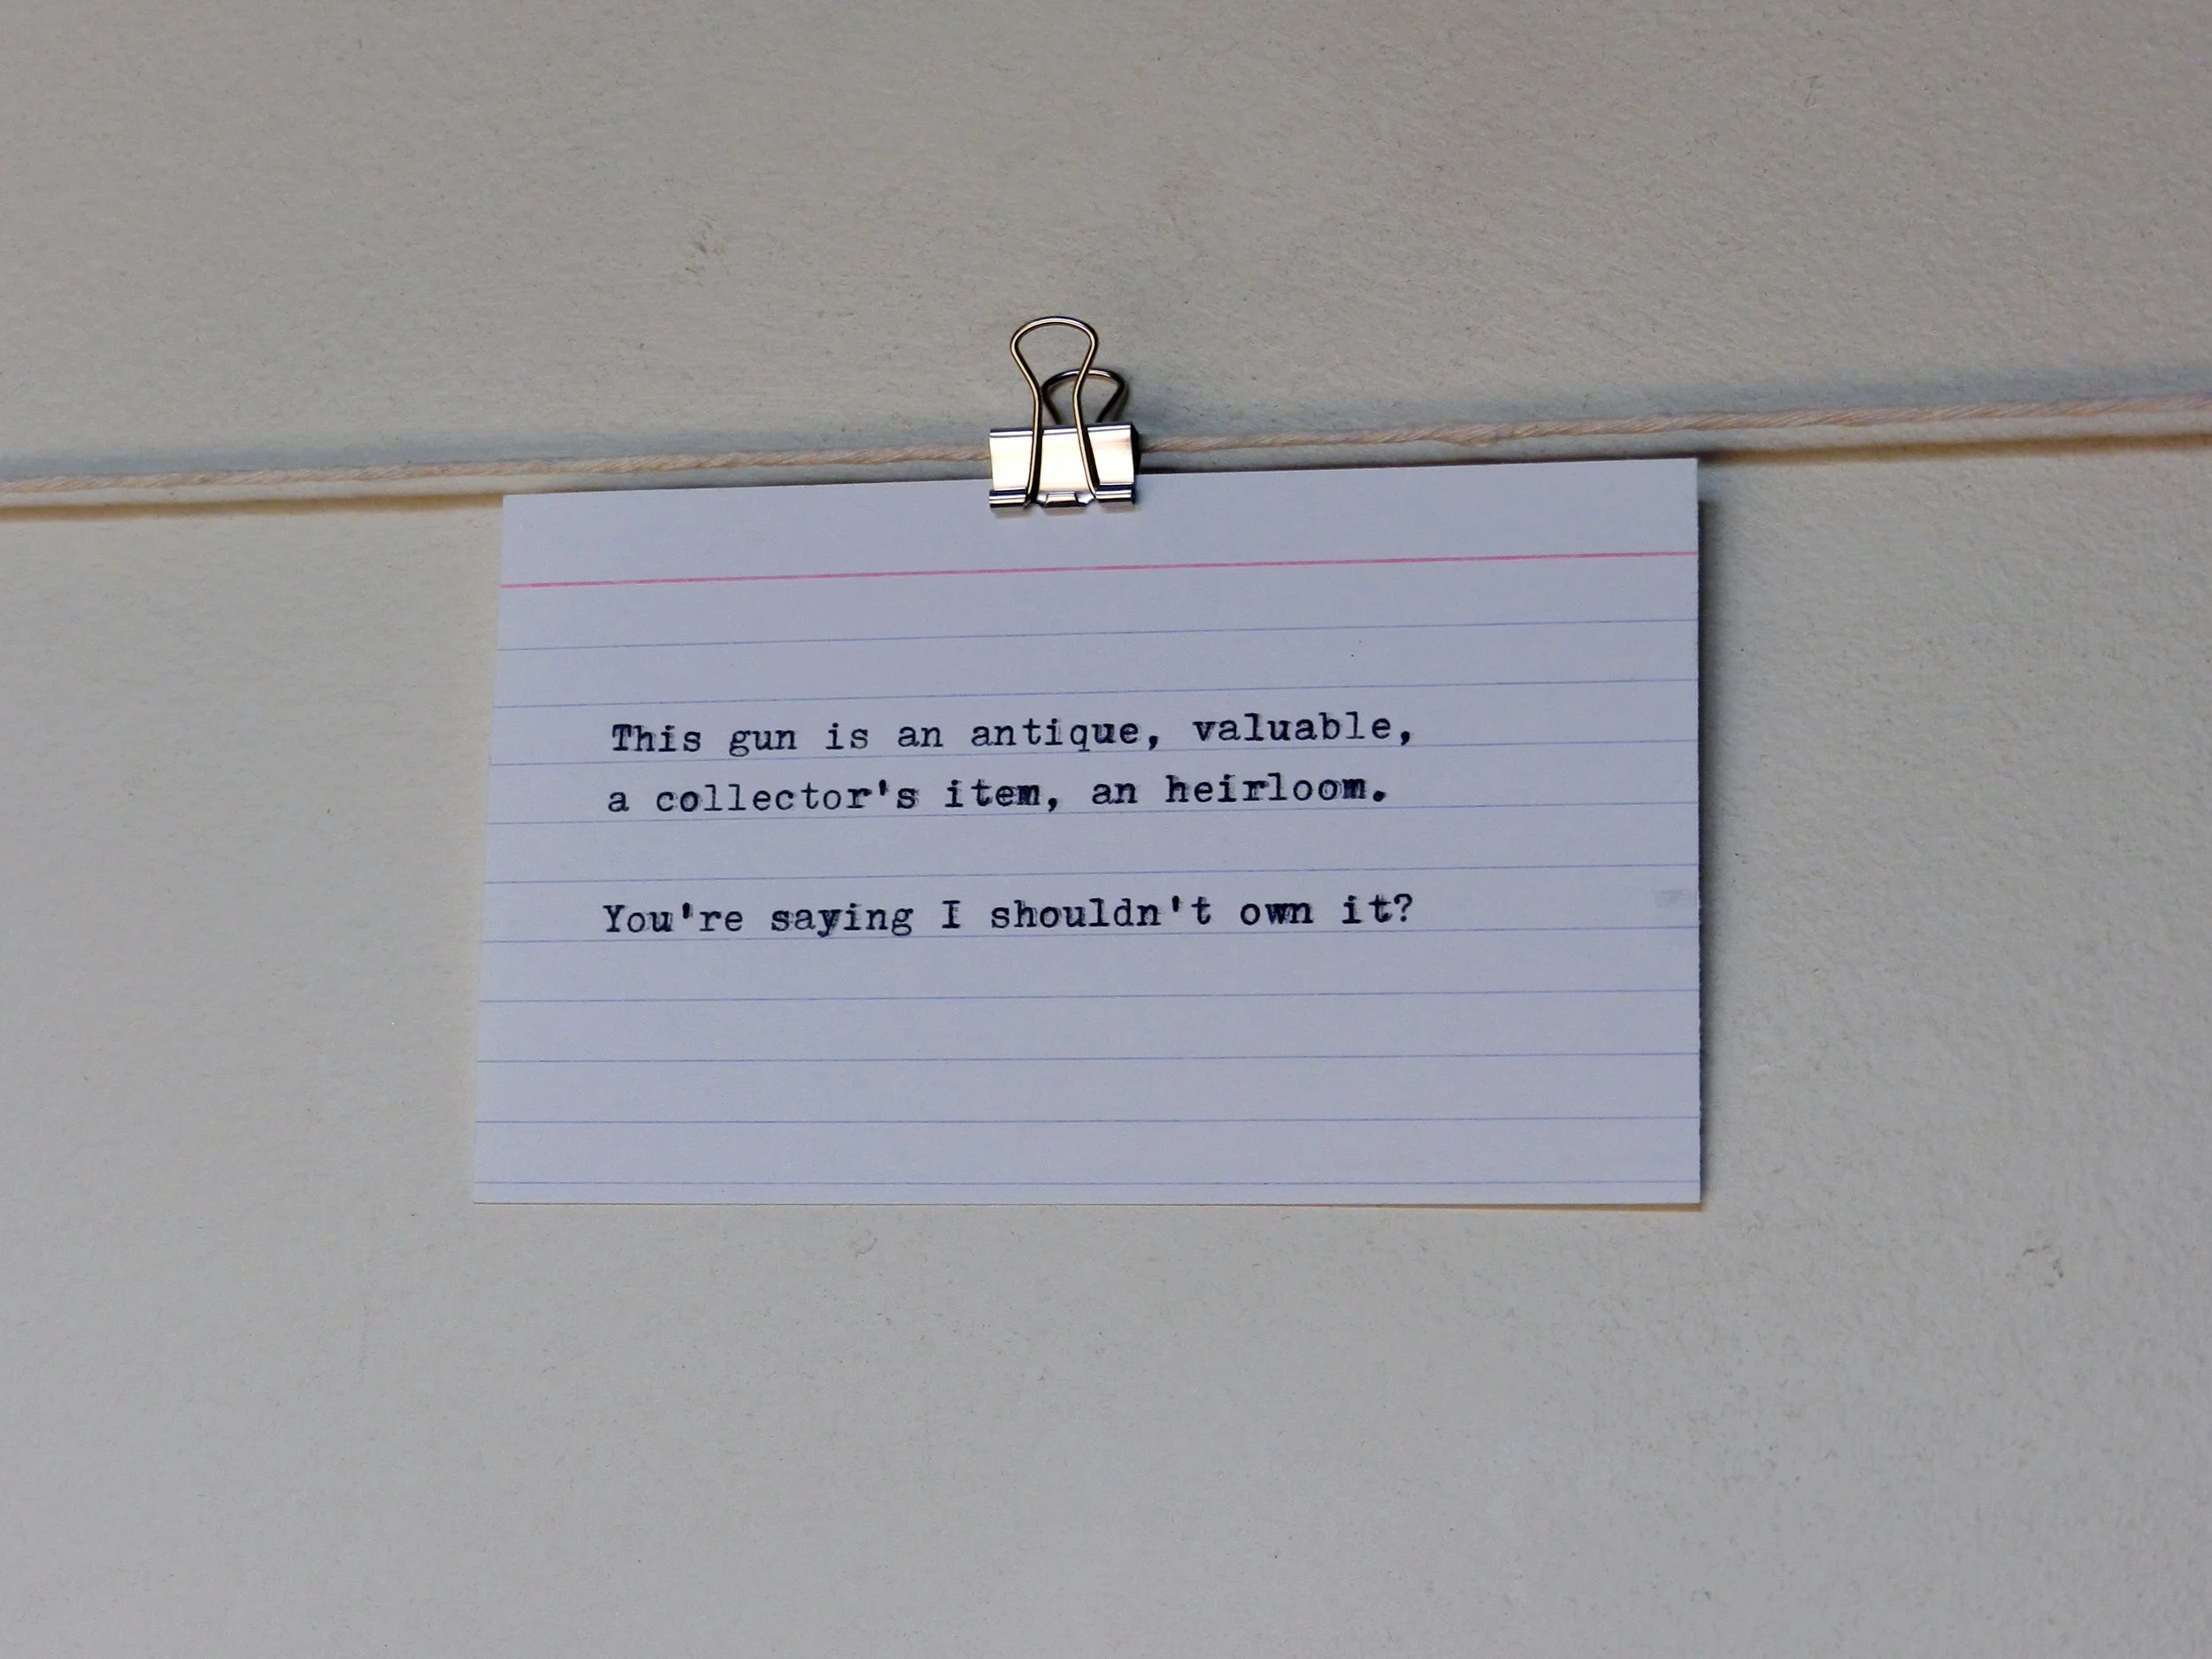 This gun is an antique, valuable,
a collector's item, an heirloom.
You're saying I shouldn't own it?